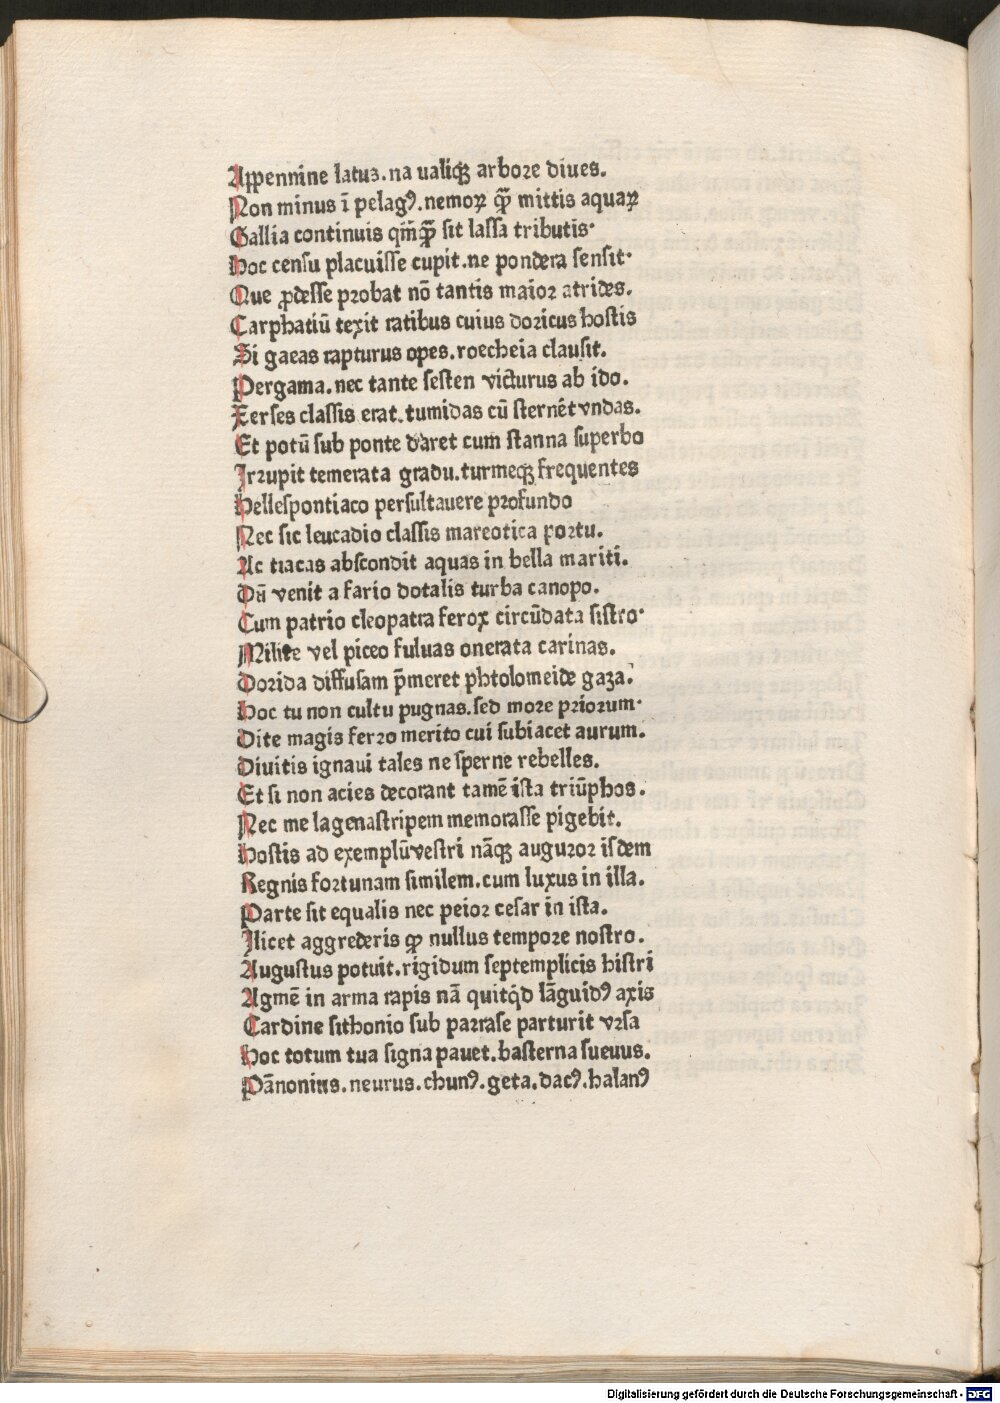 Appennine latuз.na ualiqꝫ arbore diues.
Non minus ī pelagꝰ.nemoꝝ ꝙ̄ mittis aquaꝝ
Gallia continuis qm̄ꝙ̄ sit lassa tributis·
Hoc censu placuisse cupit.ne pondera sensit·
Que ꝓdesse probat nō tantis maior atrides.
Carphatiū texit ratibus cuius doricus hostis
Si gaeas rapturus opes.roecheia clausit.
Pergama.nec tante sesten victurus ab ido.
Xerses classis erat.tumidas cū sternēt vndas.
Et potū sub ponte daret cum stanna superbo
Irrupit temerata gradu.turmeqꝫ frequentes
Hellespontiaco persultauere profundo
Nec sic leucadio classis mareotica portu.
Ac tiacas abscondit aquas in bella mariti.
Dū venit a fario dotalis turba canopo.
Cum patrio cleopatra ferox circūdata sistro·
Milite vel piceo fuluas onerata carinas.
Dorida diffusam p̄meret phtolomeide gaza.
Hoc tu non cultu pugnas.sed more priorum·
Dite magis ferro merito cui subiacet aurum.
Diuitis ignaui tales ne sperne rebelles.
Et si non acies decorant tamē ista triūphos.
Nec me lagenastripem memorasse pigebit.
Hostis ad exemplū vestri nāqꝫ auguror isdem
Regnis fortunam similem.cum luxus in illa.
Parte sit equalis nec peior cesar in ista.
Ilicet aggrederis ꝙ nullus tempore nostro.
Augustus potuit.rigidum septemplicis histri
Agmē in arma rapis nā quitqͥd lāguidꝰ axis
Cardine sithonio sub parrase parturit vrsa
Hoc totum tua signa pauet.basterna sueuus.
Pānonius.neurus.chunꝰ.geta.dacꝰ.halanꝰ
Digitalisierung gefördert durch die Deutsche Forschungsgemeinschaft - DFG